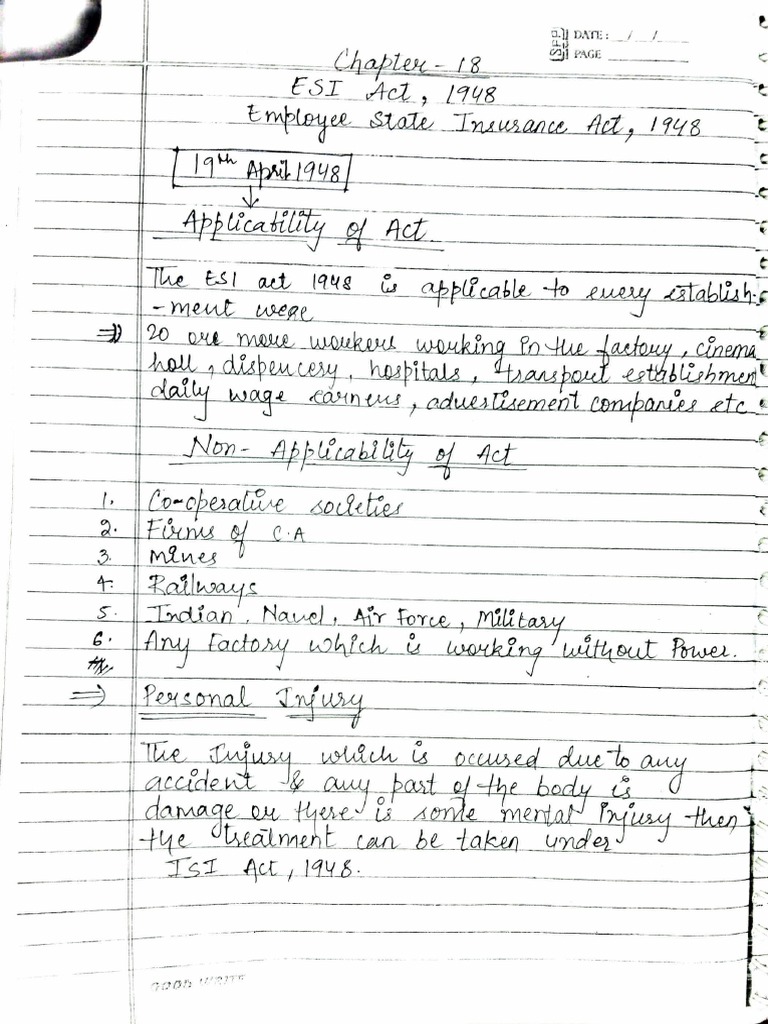 S.F.P. DATE: / /
PAGE
Chapter - 18
ESI Act, 1948
Employee State Insurance Act, 1948
19th April 1948
Applicability of Act
The ESI act 1948 is applicable to every establish-
-ment wege
20 ore more workers working in the factory, cinema
holl, dispencery, hospitals, transport establishmen
daily wage earners, advertisement companies etc
Non- Applicability of Act
1. Co-operative societies
2. Firms of C.A
3. Mines
4. Railways
5. Indian, Navel, Air Force, Military
6. Any Factory which is working without Power.
⇒ Personal Injury
The Injury which is occured due to any
accident & any part of the body is
damage or there is some mental Injury then
the treatment can be taken under
ISI Act, 1948.
GOOD WRITE